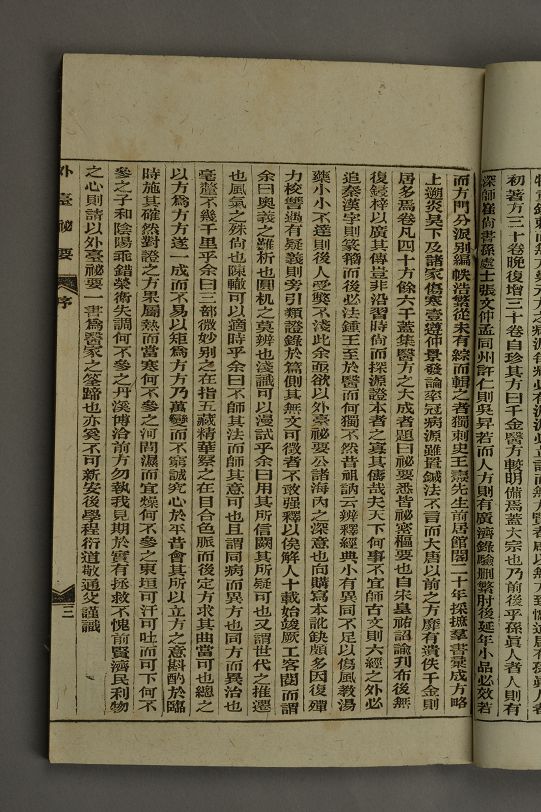 初著方三十卷晚復增三十卷自珍其方曰千金醫方輒明備焉蓋大宗也乃前後乎孫眞人者人則有
深師崔尙書孫處士張文仲孟同州許仁則吳昇若而人方則有廣濟錄驗删繁肘後延年小品必效若
而方門分派別編帙浩繁從未有綜而輯之者獨刺史王燾先生前居館閣二十年採摭羣書彙成方略
上遡炎昊下及諸家傷寒壹遵仲景發論率冠病源雖置鍼法不言而大唐以前之方靡有遺佚千金則
居多焉卷凡四十方餘六千蓋集醫方之大成者題曰祕要悉皆祕密樞要也自宋皇祐詔諭刋布後無
復鋟梓以廣其傳豈非沿習時尙而探源證本者之寡其儔哉夫天下何事不宜師古文則六經之外必
追秦漢字則篆籒而後必法鍾王至於醫而何獨不然昔祖訥云辨釋經典小有異同不足以傷風教湯
藥小小不達則後人受弊不淺此余亟欲以外臺祕要公諸海內之深意也向購寫本訛缺頗多因復殫
力校讐遇有疑義則旁引類證錄於篇側其無文可徵者不敢强釋以俟解人十載始竣厥工客閱而謂
余曰奥義之難析也圓机之莫辨也淺識可以漫試乎余曰用其所信闕其所疑可也又謂世代之推遷
也風氣之殊尙也陳轍可以適時乎余曰不師其法而師其意可也且謂同病而異方也同方而異治也
毫釐不幾千里乎余曰三部微妙別之在指五藏精華察之在目合色脈而後定方求其曲當可也總之
以方爲方方遂一成而不易以矩爲方方乃萬變而不窮誠究心於平昔會其所以立方之意斟酌於臨
時施其確然對證之方果屬熱而當寒何不參之河間濕而宜燥何不參之東垣可汗可吐而可下何不
參之子和陰陽乖錯榮衞失調何不參之丹溪博洽前方勿執我見期於實有拯救不愧前賢濟民利物
之心則請以外臺祕要一書爲醫家之筌蹄也亦奚不可新安後學程衍道敬通父謹識
外臺祕要 序 三